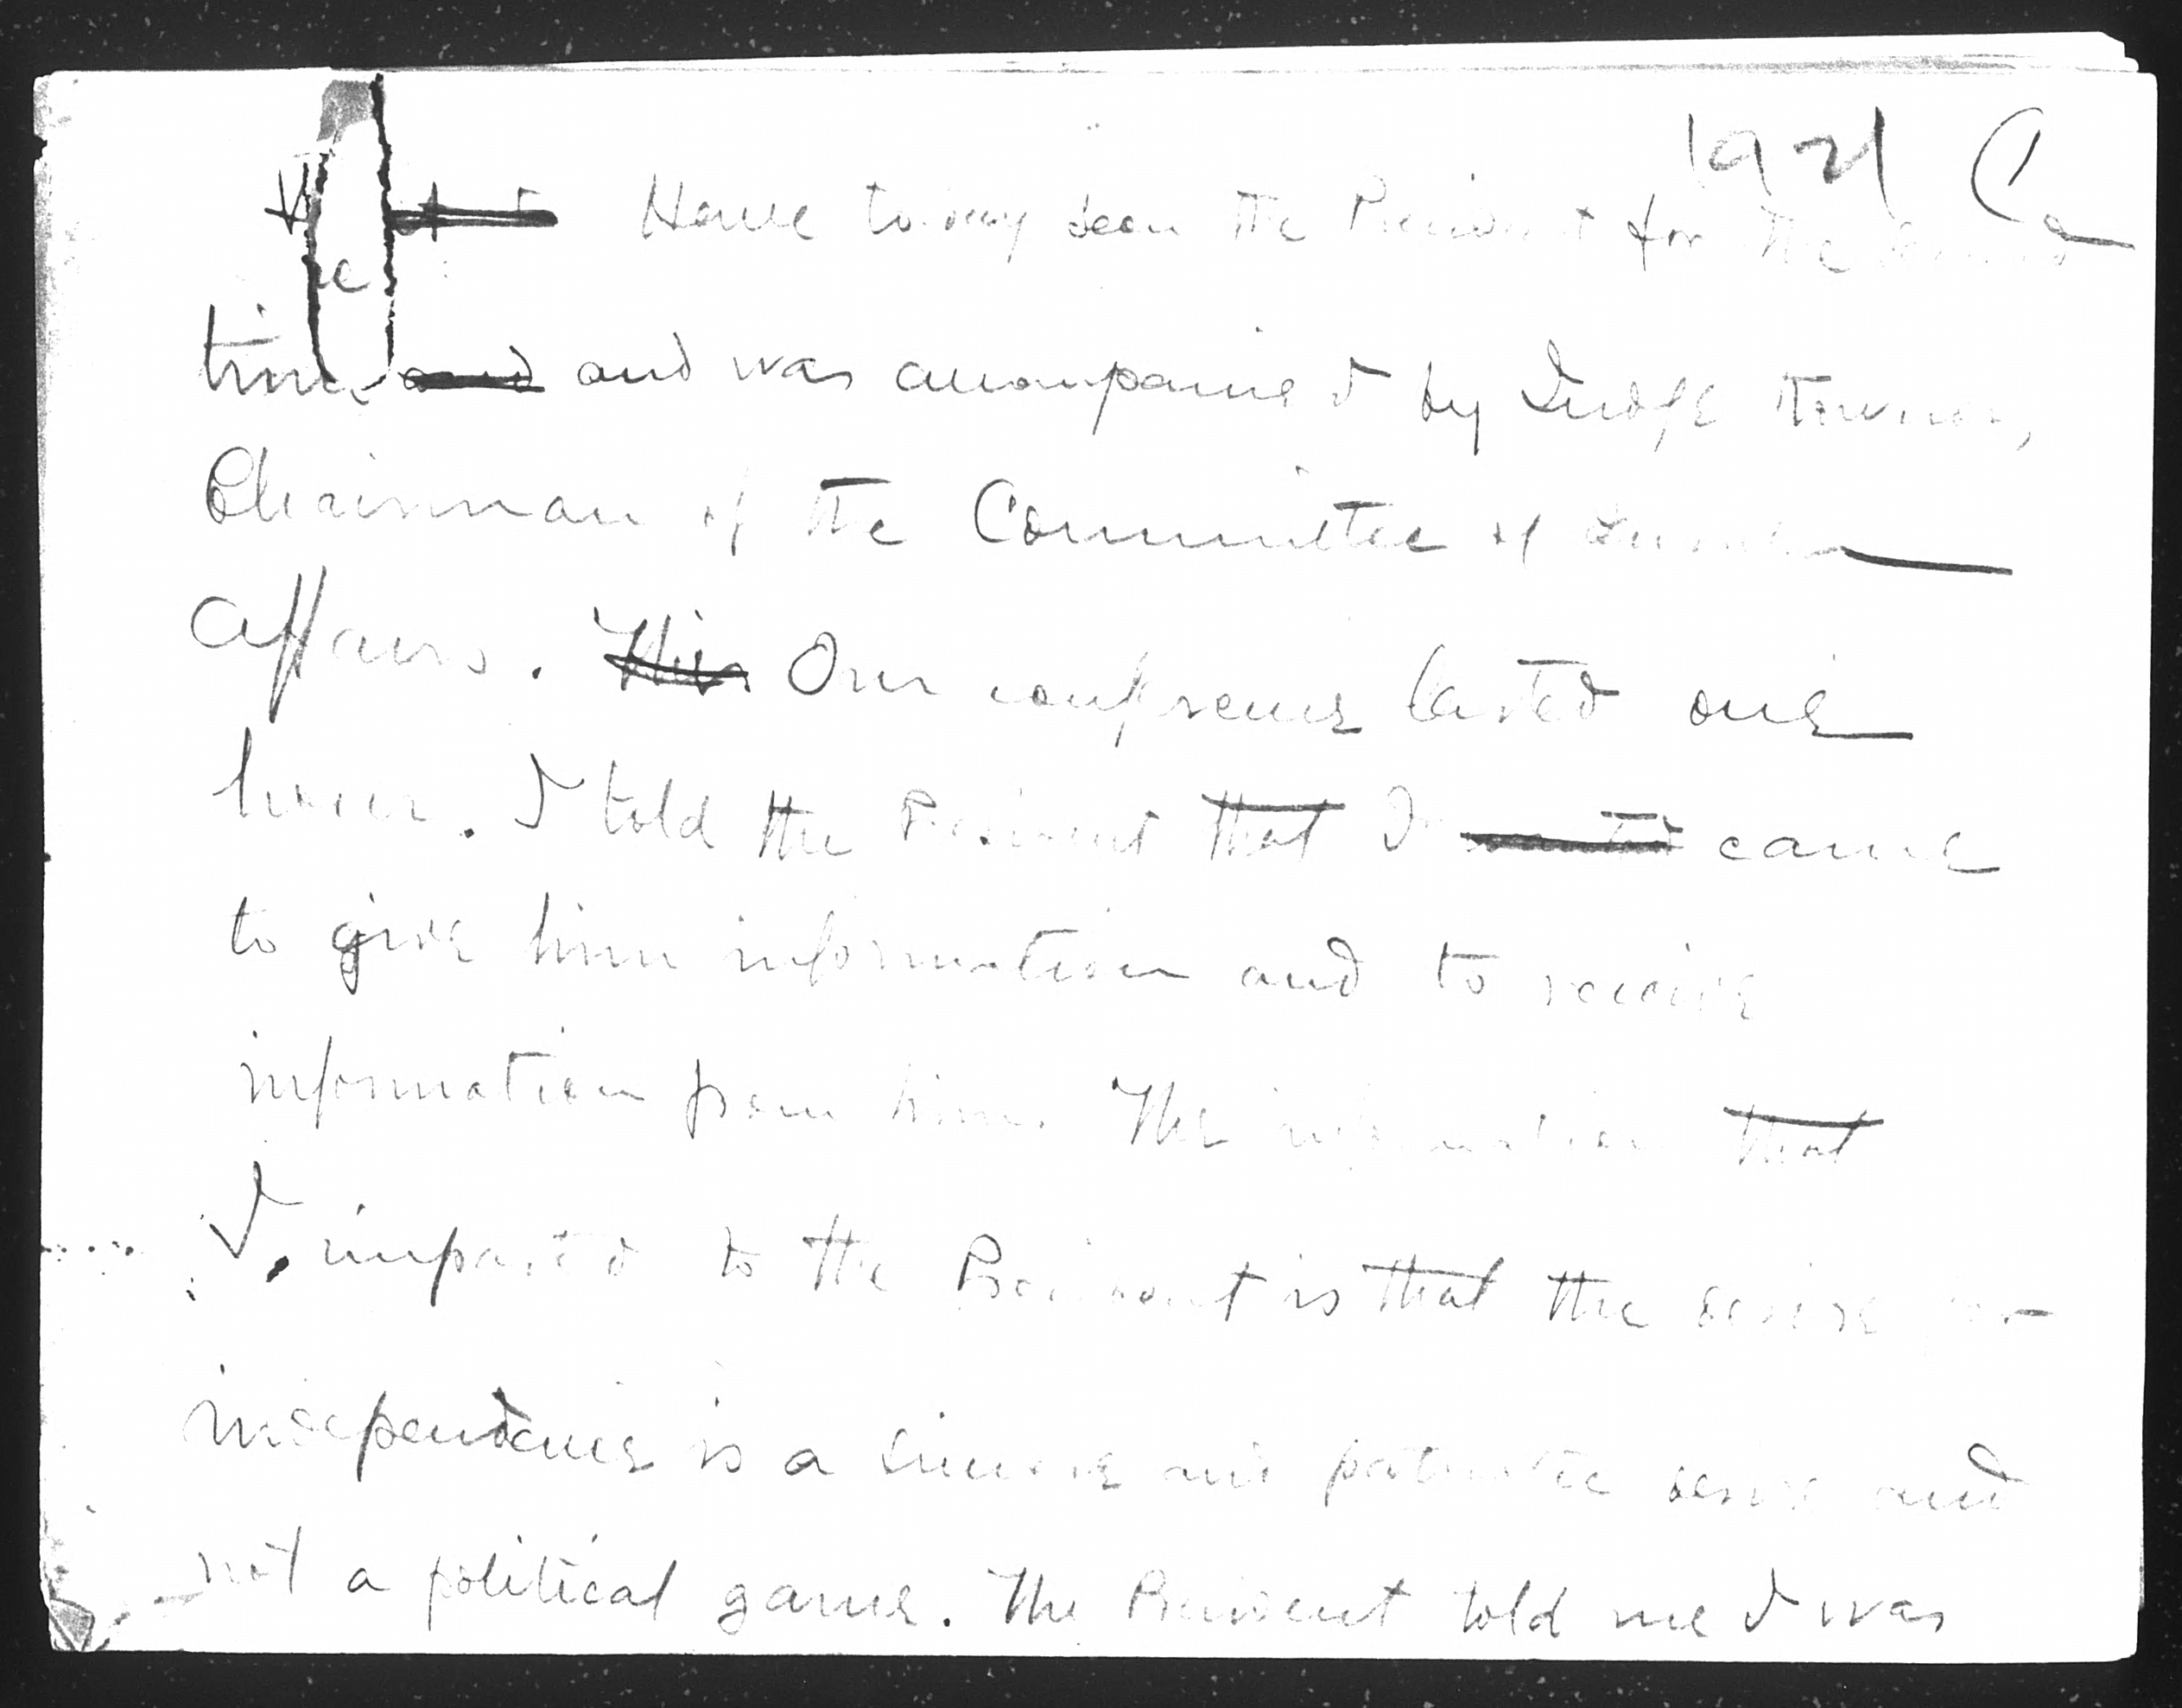 1921 Ca
Have to-day seen the President for the second
time and and was accompanied by Judge Towner,
Chairman of the Committee of Insular
Affairs. His Our conference lasted one
hour. I told the President that I wanted came
to give him information and to receive
information from him. The information that
I imparted to the President is that the desire for
independence is a sincere and patriotic desire and
not a political game. The President told me I was